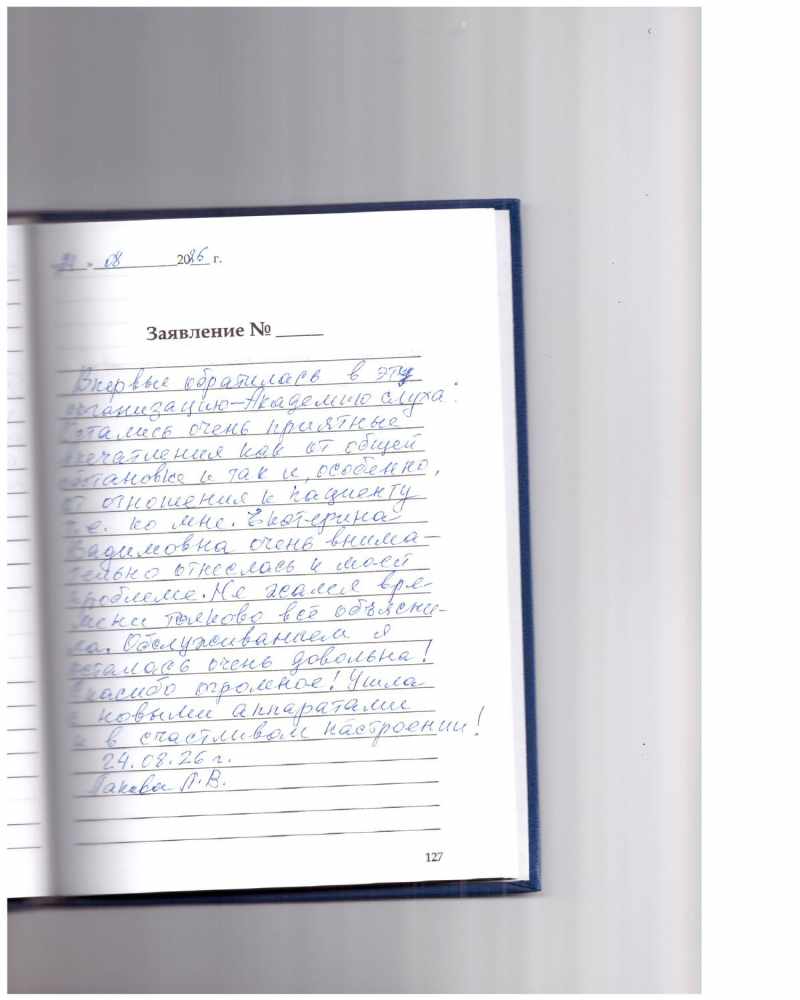 24 » 08 2026 г.
Заявление № ____
Впервые обратилась в эту
организацию – Академию слуха.
Остались очень приятные
впечатления как от общей
обстановки так и, особенно,
от отношения к пациенту
т.е. ко мне. Екатерина
Вадимовна очень внима–
тельно отнеслась к моей
проблеме. Не жалея вре–
мени толково всё объясни–
ла. Обслуживанием я
осталась очень довольна!
Спасибо огромное! Ушла
с новыми аппаратами
и в счастливом настроении!
24.08.26 г.
Л.В.
127